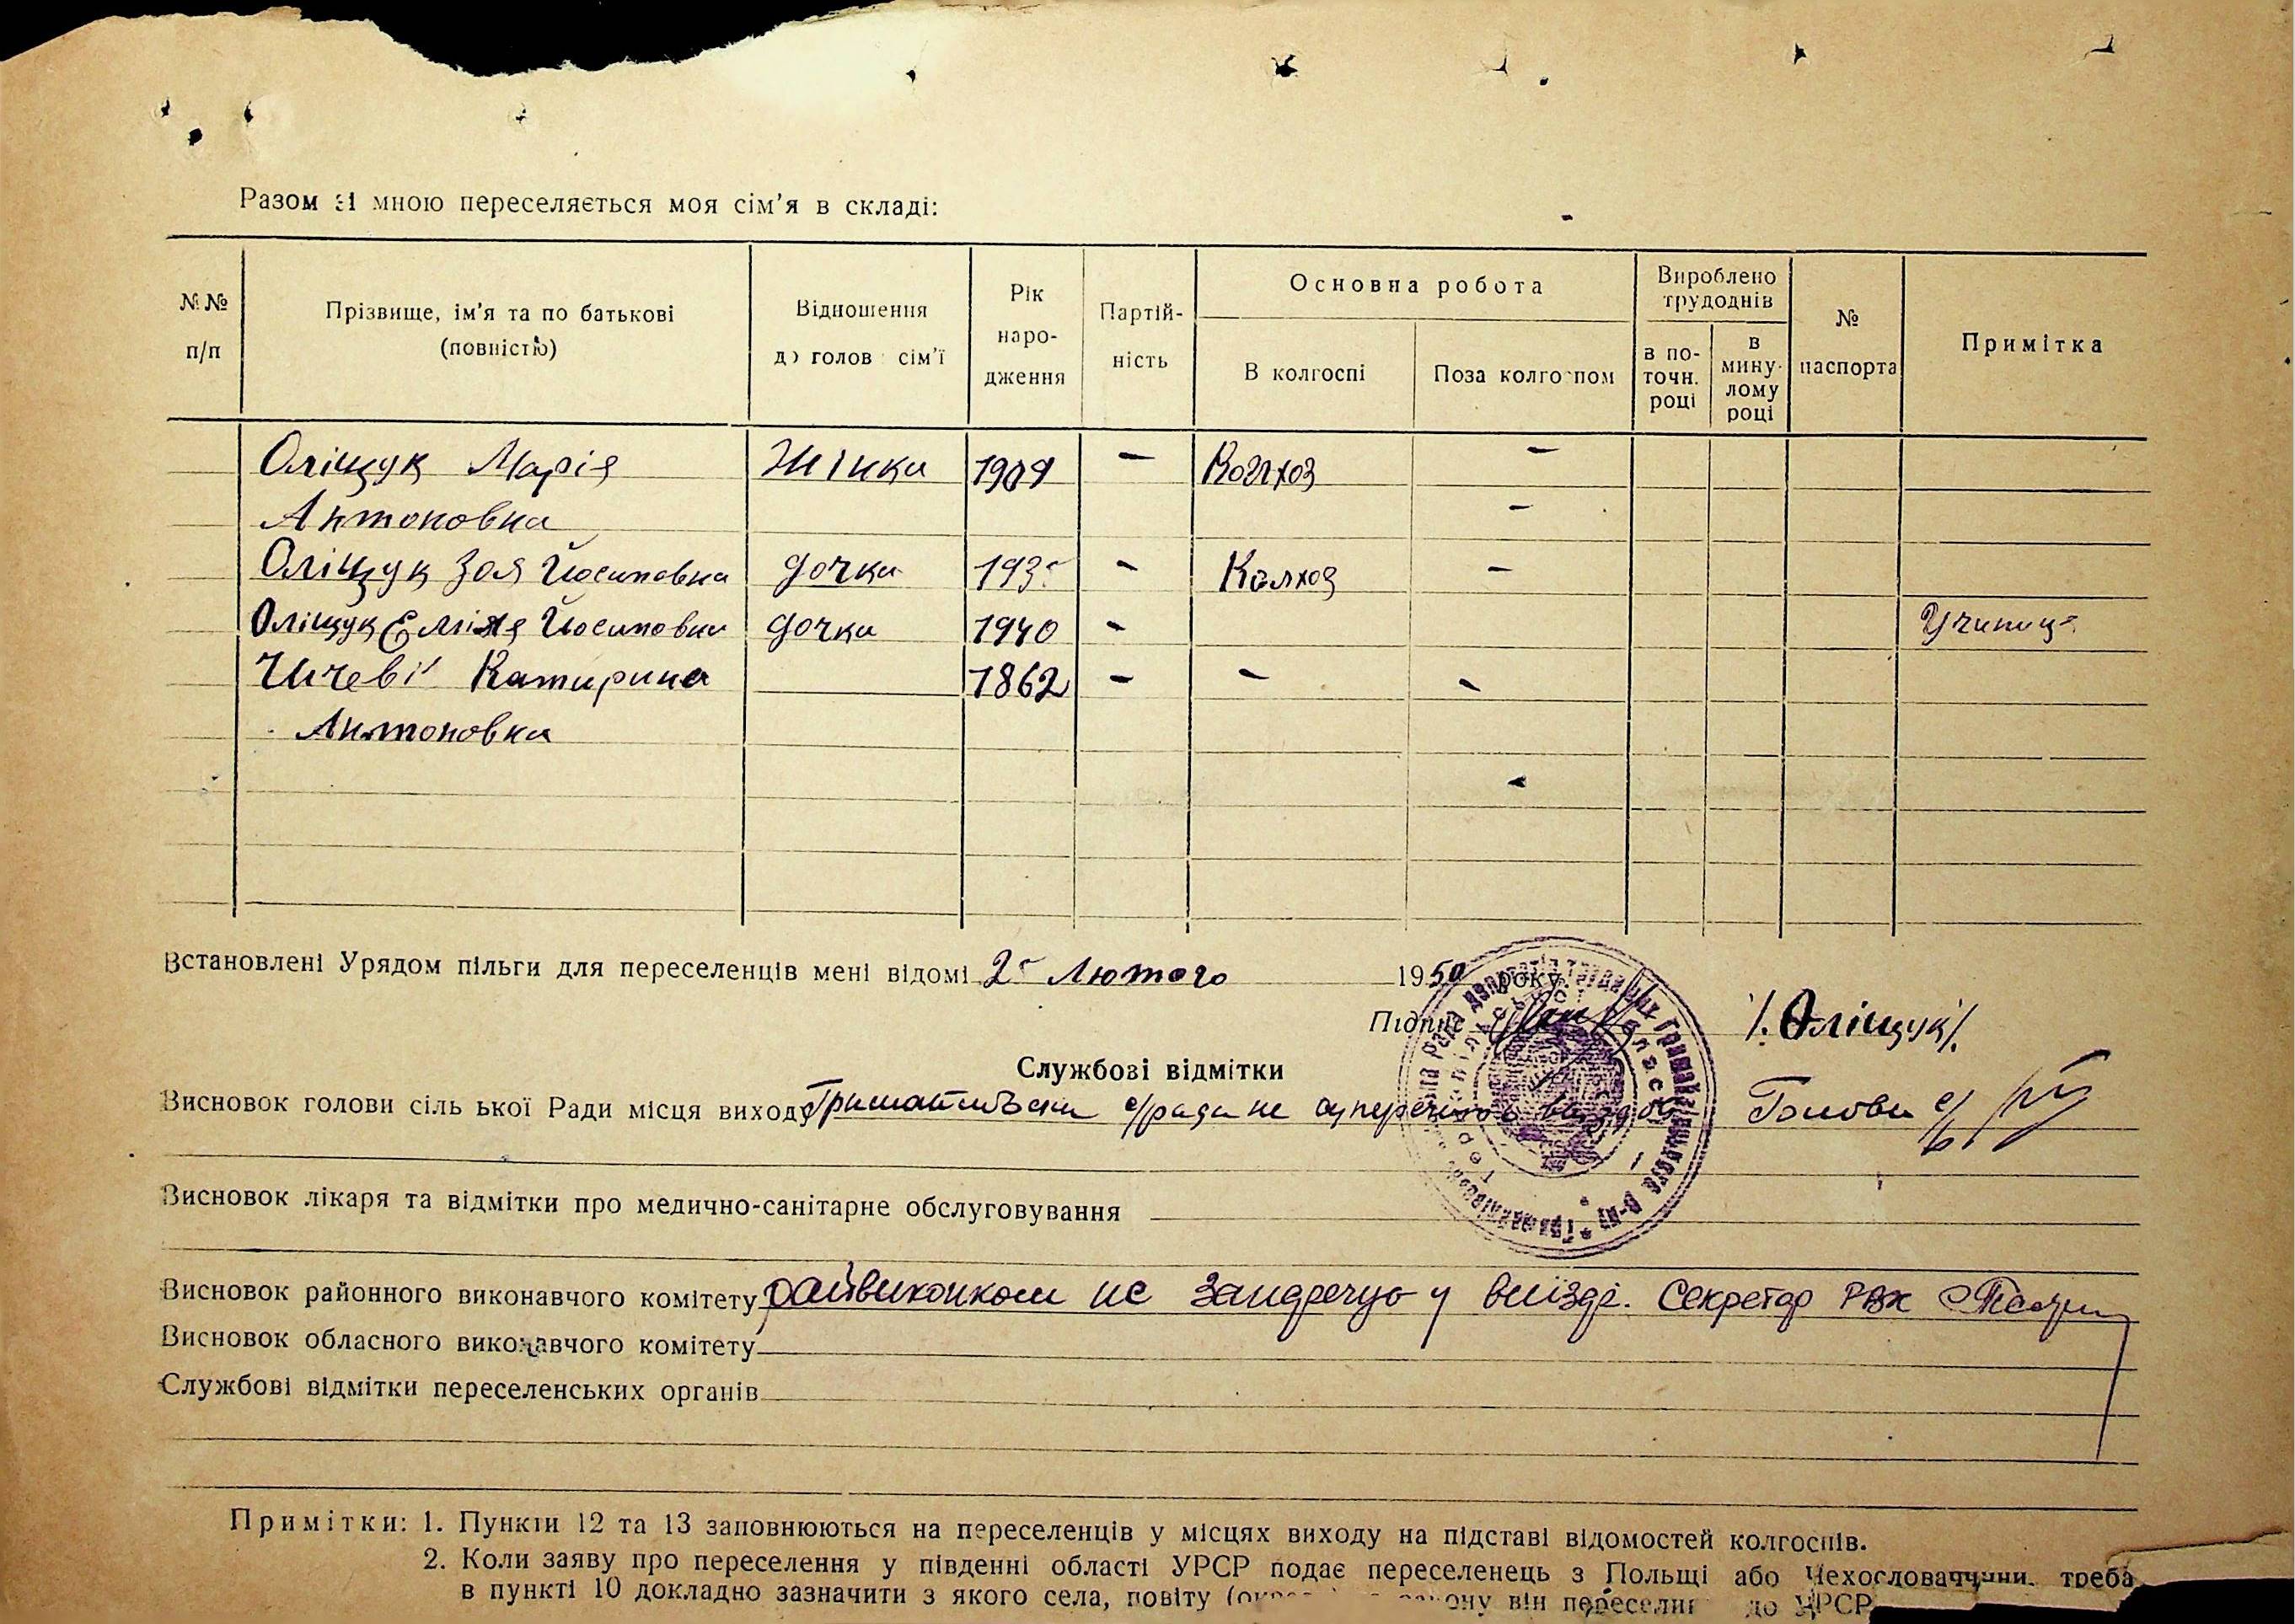 Разом зі мною переселяється моя сім'я в складі:
№№ п/п
Прізвище, ім'я та по батькові (повністю)
Відношення до голов сім'ї
Рік народження
Партійність
Основна робота
В колгоспі
Поза колгоспом
Вироблено трудоднів
в поточн. році
в минулому році
№ паспорта
Примітка
Оліщук Марія жінка 1909 — Колхоз —
Антоновна —
Оліщук Зоя Йосиповна дочка 193 - Колхоз —
Оліщук Йосиповна дочка 1940 - Учениця
Катирина 1862 - - -
Антоновна
Встановлені Урядом пільги для переселенців мені відомі 25 Лютого 1950 року.
Підпис /.Оліщук/.
Службові відмітки
Висновок голови сільської Ради місця виходу с/рада не Голова с/р
Висновок лікаря та відмітки про медично-санітарне обслуговування
Висновок районного виконавчого комітету райвиконком не заперечує у виїзді. Секретар РВК
Висновок обласного виконавчого комітету
Службові відмітки переселенських органів
Примітки: 1. Пункти 12 та 13 заповнюються на переселенців у місцях виходу на підставі відомостей колгоспів.
2. Коли заяву про переселення у південні області УРСР подає переселенець з Польщі або Чехословаччини, треба
в пункті 10 докладно зазначити з якого села, повіту він до УРСР